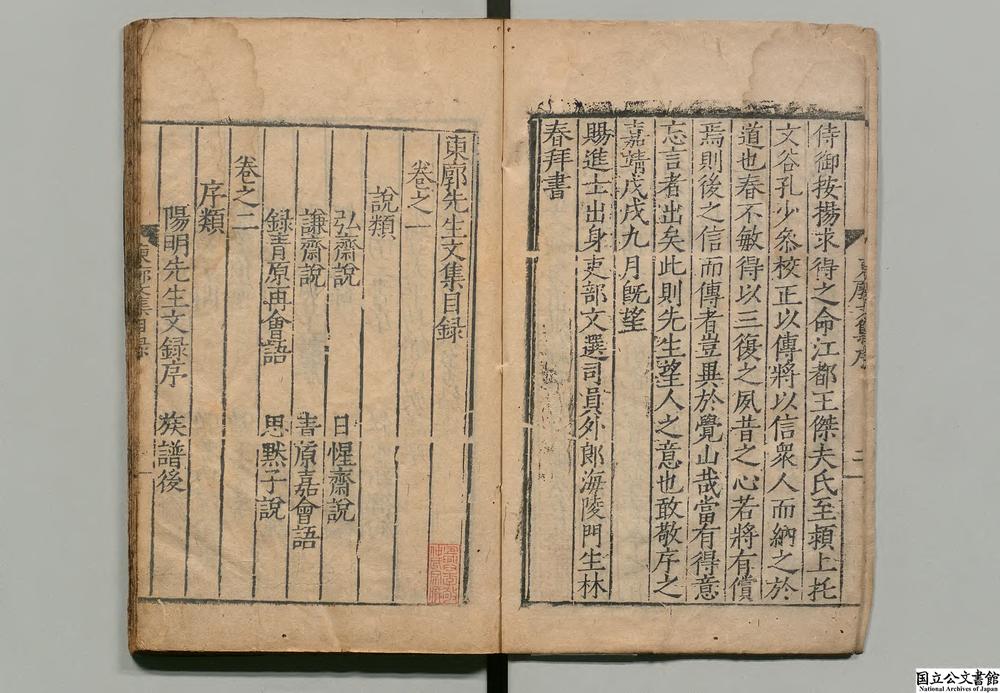 侍御按揚求得之命江都王傑夫氏至潁上托
文谷孔少叅校正以傳將以信衆人而納之於
道也春不敏得以三復之夙昔之心若將有償
焉則後之信而傳者豈異於覺山哉當有得意
忘言者出矣此則先生望人之意也敢敬序之
嘉靖戊戌九月旣望
賜進士出身吏部文選司員外郎海陵門生林
春拜書
東廓先生文集目録
卷之一
說類
弘齋說 日惺齋說
謙齋說 書原嘉會語
録青原再會語 思黙子說
卷之二
序類
陽明先生文録序 族譜後
東廓文集目録
国立公文書館
National Archives of Japan